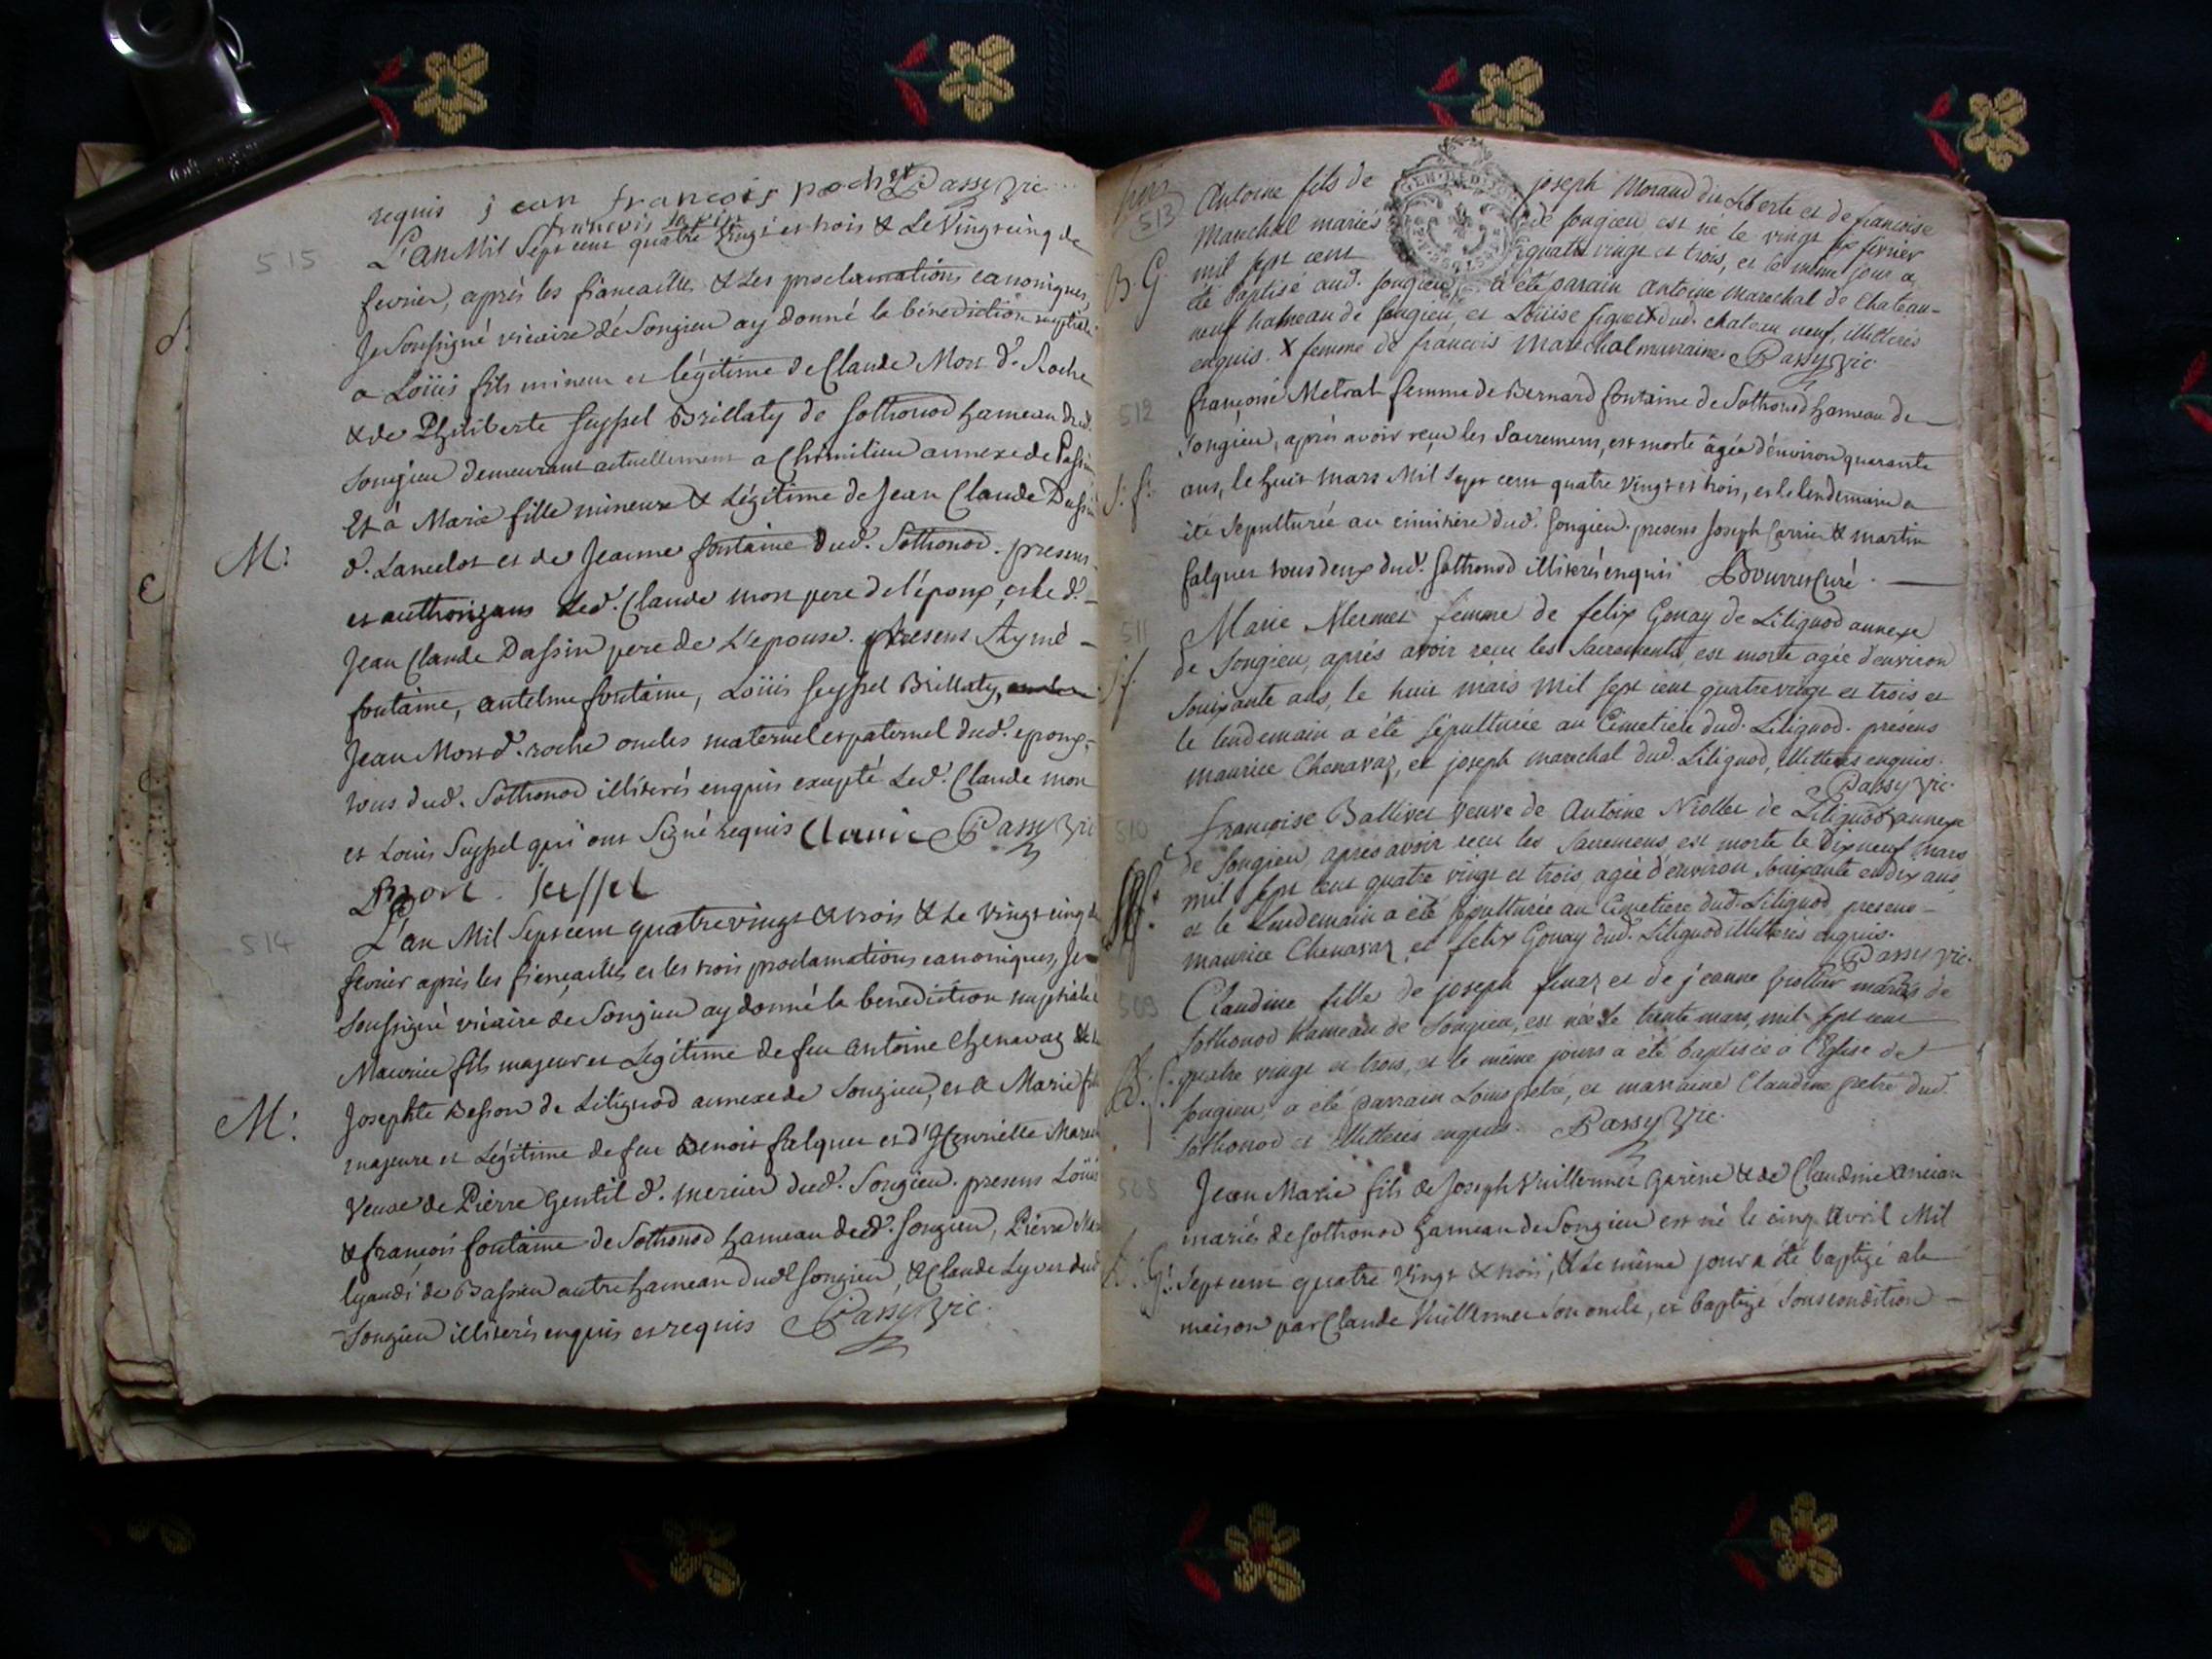 requis jean francois pochet Passy Vic.
francois
515
L'an Mil Sept cent quatre Vingt et trois & Le Vingt cinq de
fevrier, après les fiancailles & Les proclamations canoniques,
Je Soussigné vicaire de Songieu ay donné la bénédiction nuptiale
a Loüis fils mineur et légitime de Claude Mort d. Roche
& de Philiberte Seyssel Brillaty de Sothonod hameau dud.
Songieu demeurant actuellement a Chimilieu annexe de Passin
Et à Marie fille mineure & Légitime de Jean Claude Dassin
M:
d. Lancelot et de Jeanne fontaine dud. Sothonod. presens
et authorizans Led. Claude mort pere de l'époux, et le d.
Jean Claude Dassin pere de L'epouse. presens Aymé
fontaine, antelme fontaine, Loüis Seyssel Brillaty,
Jean Mort d. roche oncles maternel et paternel dud. epoux,
tous dud. Sothonod illiterés enquis excepté Led. Claude mort
et Louis Seyssel qui ont Signé requis Passy Vic
Mort. Seyssel
514
L'an Mil Sept cent quatre vingt & trois & Le vingt cinq de
fevrier après les fiancailles et les trois proclamations canoniques, Je
Soussigné vicaire de Songieu ay donné la bénédiction nuptiale a
Maurice fils majeur et Legitime de feu antoine Chenavaz & de
Josephte Besson de Lilignod annexe de Songieu, et a Marie fille
M:
majeure et Légitime de feu Benoit falquet et d'Henriette
Veuve de Pierre Gentil d. mercier dud. Songieu. presens Loüis
& françois fontaine de Sothonod hameau dud. Songieu, Pierre
de Bassieu autre hameau dud. Songieu, & Claude Lyvet dud.
Songieu illiterés enquis et requis Passy Vic.
513
Antoine fils de joseph Moraud du Liberte et de francoise
Marechal mariés de songieu est né le vingt six fevrier
B. G. mil sept cent quatre vingt et trois, et le même jour a
été baptisé aud. songieu, a été parain antoine Marechal de Chateau-
neuf hameau de songieu et Loüise siguet X dud. chateau neuf, illitterés
enquis. X femme de francois Marechal marraine Passy Vic.
512
françoise Metral femme de Bernard fontaine de Sothonod hameau de
Songieu, après avoir reçu les Sacremens, est morte âgée d'environ quarante
S. f. ans, le huit mars Mil Sept cent quatre Vingt et trois, et le lendemain a
été Sepulturée au cimitière dud. Songieu. presens Joseph Carrier & martin
falquet tous deux dud. Sothonod illiterés enquis Bourret Curé.
511
Marie Mermet femme de felix Gonay de Lilignod annexe
S. f. de Songieu, après avoir reçu les Sacrements, est morte agée d'environ
soixante ans, le huit mars mil sept cent quatre vingt et trois et
le lendemain a été sépulturée au Cimetiere dud. Lilignod. présens
maurice Chenavaz, et joseph marechal dud. Lilignod, illitterés enquis.
Passy Vic.
510
françoise Ballivet veuve de Antoine Niollet de Lilignod annexe
de songieu après avoir reçu les sacremens, est morte le Dix neuf mars
mil sept cent quatre vingt et trois, agée d'environ soixante et dix ans,
et le Lendemain a été sépulturée au Cimetiere dud. Lilignod presens
maurice Chenavaz, et felix Gonay dud. Lilignod illitterés enquis.
Passy Vic.
509
Claudine fille de joseph finaz et de jeanne mariés de
sothonod hameau de songieu, est née le trente mars, mil sept cent
B. f. quatre vingt et trois, et le même jours a été baptisée a l'Eglise de
songieu, a été parrain Louis petré, et marraine Claudine petré dud.
sothonod et illitterés enquis. Passy Vic.
508
Jean Marie fils de Joseph Vuillermet Garine & de Claudine ancian
mariés de Sothonod hameau de Songieu est né le cinq avril Mil
B. G. Sept cent quatre Vingt & trois, & Le même jour a été baptizé a la
maison par Claude Vuillermet Son oncle, et baptizé Sous condition